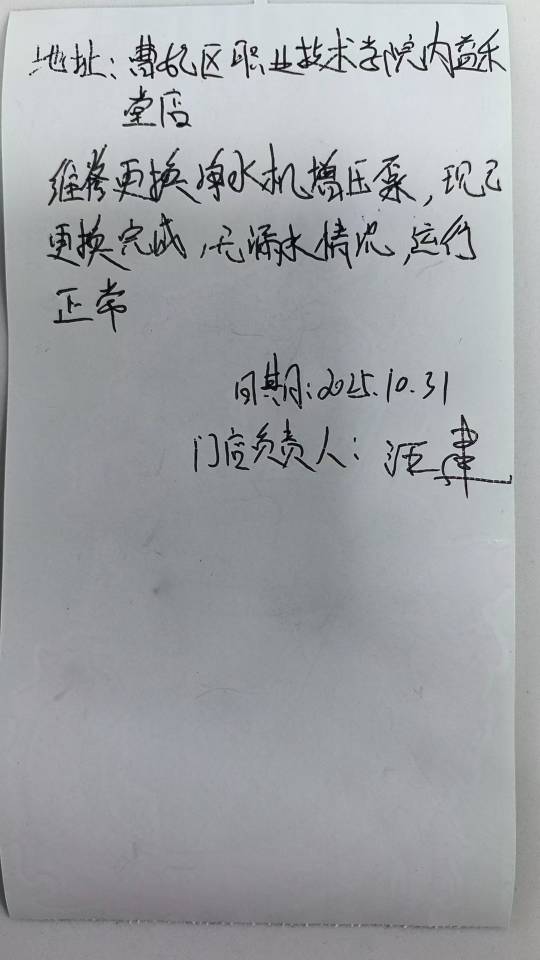 地址：曹妃区职业技术学院内益禾
堂店
维修更换净水机增压泵，现已
更换完成，无漏水情况，运行
正常
日期：2025.10.31
门店负责人：